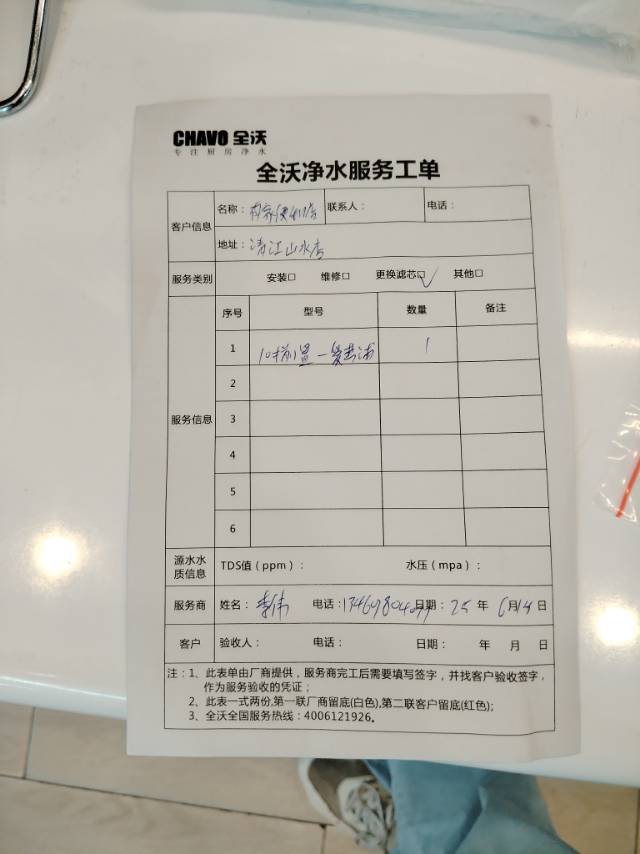 CHAVO 全沃
专注厨房净水
全沃净水服务工单
客户信息 名称： 联系人： 电话：
地址：清江山水店
服务类别 安装□ 维修□ 更换滤芯☑ 其他□
服务信息 序号 型号 数量 备注
1 10寸 1
2
3
4
5
6
源水水质信息 TDS值（ppm）： 水压（mpa）：
服务商 姓名：李伟 电话： 日期：25年6月14日
客户 验收人： 电话： 日期： 年 月 日
注：1、此表单由厂商提供，服务商完工后需要填写签字，并找客户验收签字，
作为服务验收的凭证；
2、此表一式两份,第一联厂商留底(白色),第二联客户留底(红色);
3、全沃全国服务热线：4006121926。